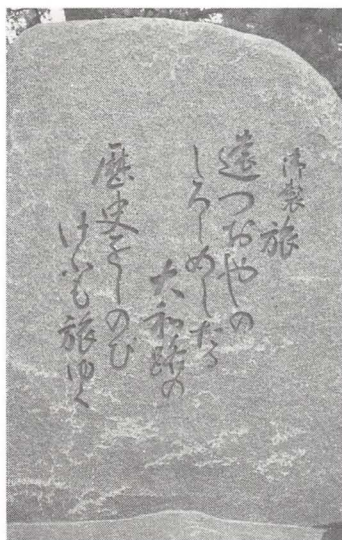 御製 旅
遠つおやの
しろしめしたる
大和路の
歴史をしのび
けふも旅ゆく